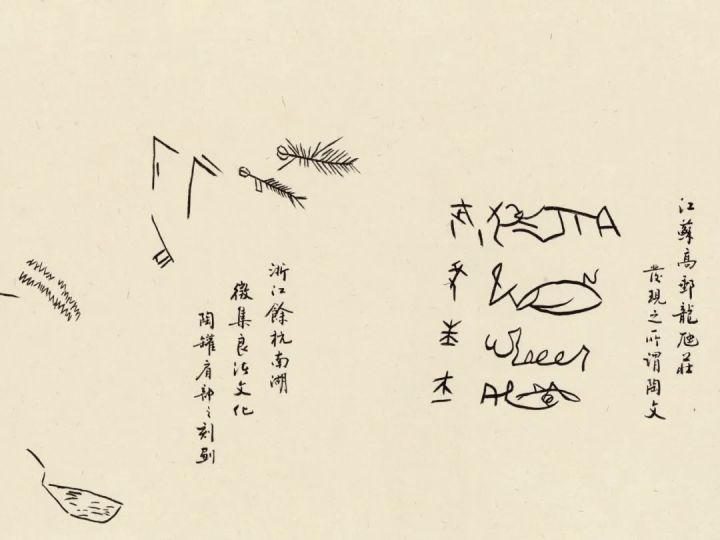 江蘇高郵龍虬莊
發現之所謂陶文
浙江餘杭南湖
徵集良渚文化
陶罐肩部之刻劃